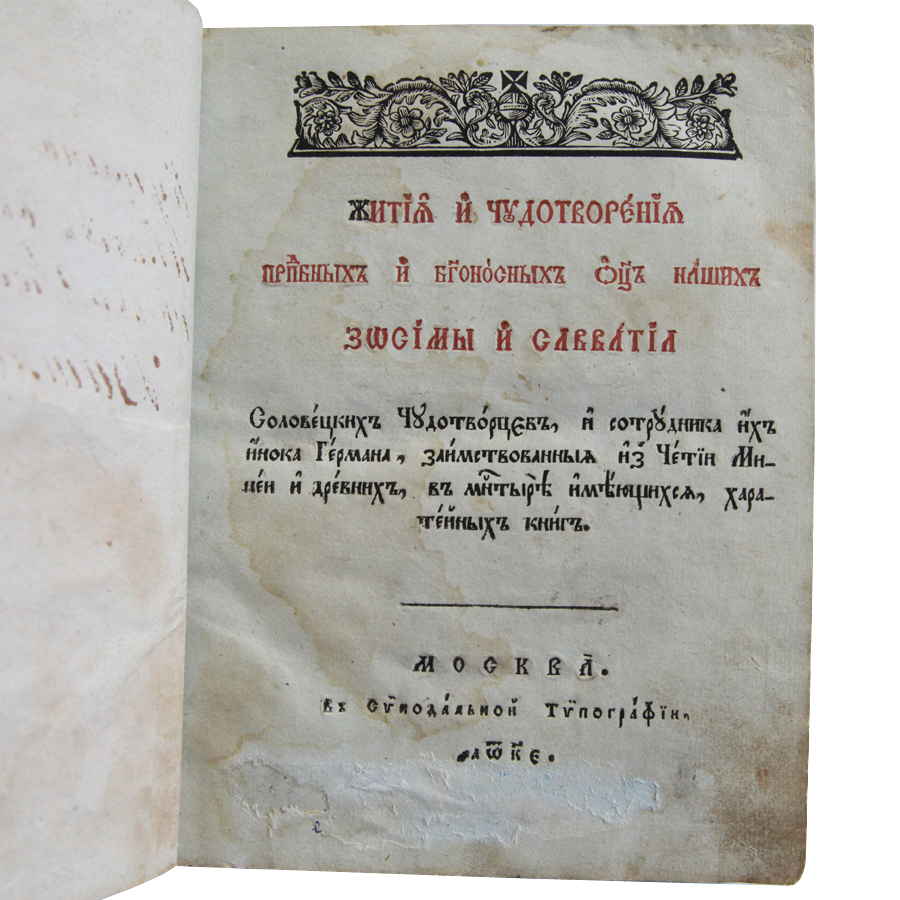 Житїѧ̑ и҆ чꙋдотворе́нїѧ
прⷣпбныхъ и҆ бг҃оно́сныхъ ѻ҆ц҃ъ на́шихъ
Зѡсі́мы и҆ Савва́тїа
Солове́цкихъ Чꙋдотво́рцєвъ, и҆ сотрꙋ́дника и҆́хъ
и҆́нока Ге́рмана, заи́мствованныѧ и҆з̾ Че́тїи Ми-
не́и и҆ дре́внихъ, въ мн҃тырѣ̀ и҆мѣ́ющихсѧ, хара-
те́йныхъ кни́гъ.
МОСКВА̀.
Въ Сѷнода́льной Тѷпогра́фїи,
҂аѿк҃є.